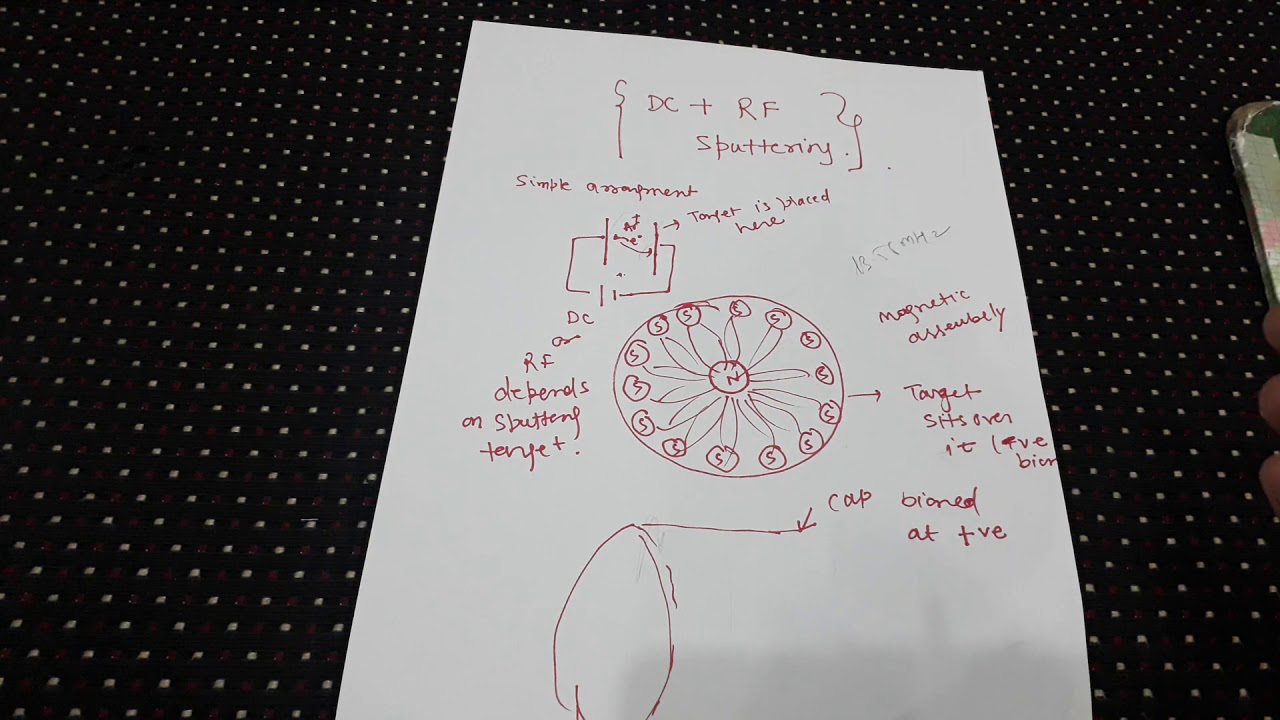 DC + RF
Sputtering.
Simple arrangment
Ar+
e-
Target is placed
here
DC
or
RF
depends
on sputtering
target.
13.56 MHz
magnetic
assembly
S S S S S S S S S S S S S S
N
Target
sits over
it (-ve
bias
Cap biased
at +ve